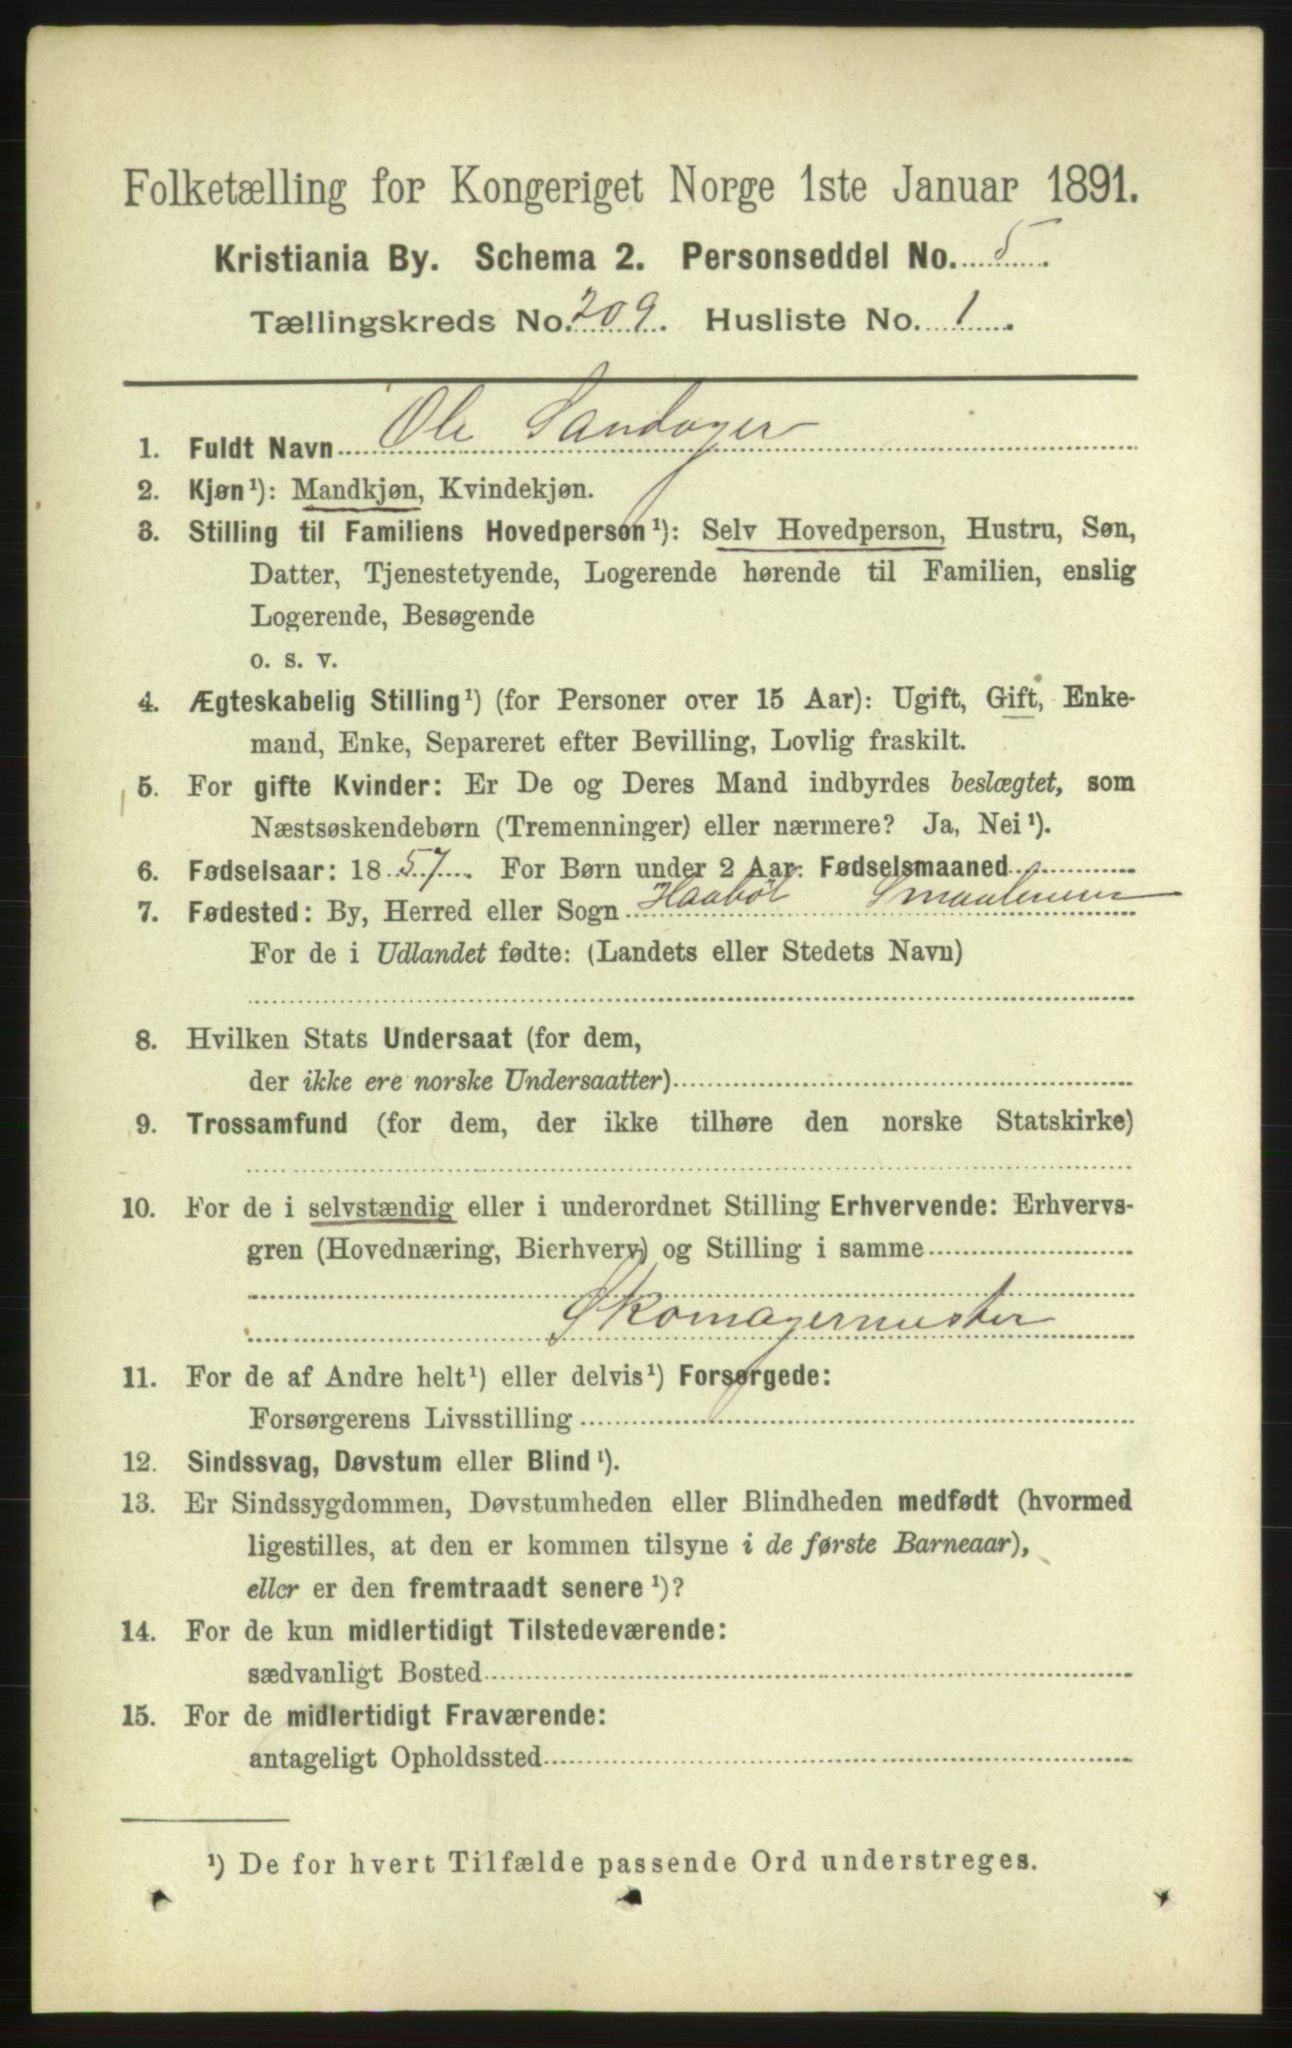 Folketælling for Kongeriget Norge 1ste Januar 1891.
Kristiania By. Schema 2. Personseddel No. 5
Tællingskreds No. 209. Husliste No. 1
1. Fuldt Navn Ole Sandager
2. Kjøn¹): Mandkjøn, Kvindekjøn.
3. Stilling til Familiens Hovedperson¹): Selv Hovedperson, Hustru, Søn,
Datter, Tjenestetyende, Logerende hørende til Familien, enslig
Logerende, Besøgende
o. s. v.
4. Ægteskabelig Stilling¹) (for Personer over 15 Aar): Ugift, Gift, Enke-
mand, Enke, Separeret efter Bevilling, Lovlig fraskilt.
5. For gifte Kvinder: Er De og Deres Mand indbyrdes beslægtet, som
Næstsøskendebørn (Tremenninger) eller nærmere? Ja, Nei¹).
6. Fødselsaar: 1857. For Børn under 2 Aar: Fødselsmaaned
7. Fødested: By, Herred eller Sogn Haabøl Smaalenene
For de i Udlandet fødte: (Landets eller Stedets Navn)
8. Hvilken Stats Undersaat (for dem,
der ikke ere norske Undersaatter)
9. Trossamfund (for dem, der ikke tilhøre den norske Statskirke)
10. For de i selvstændig eller i underordnet Stilling Erhvervende: Erhvervs-
gren (Hovednæring, Bierhverv) og Stilling i samme
Skomagermester
11. For de af Andre helt¹) eller delvis¹) Forsørgede:
Forsørgerens Livsstilling
12. Sindssvag, Døvstum eller Blind¹).
13. Er Sindssygdommen, Døvstumheden eller Blindheden medfødt (hvormed
ligestilles, at den er kommen tilsyne i de første Barneaar),
eller er den fremtraadt senere¹)?
14. For de kun midlertidigt Tilstedeværende:
sædvanligt Bosted
15. For de midlertidigt Fraværende:
antageligt Opholdssted
¹) De for hvert Tilfælde passende Ord understreges.